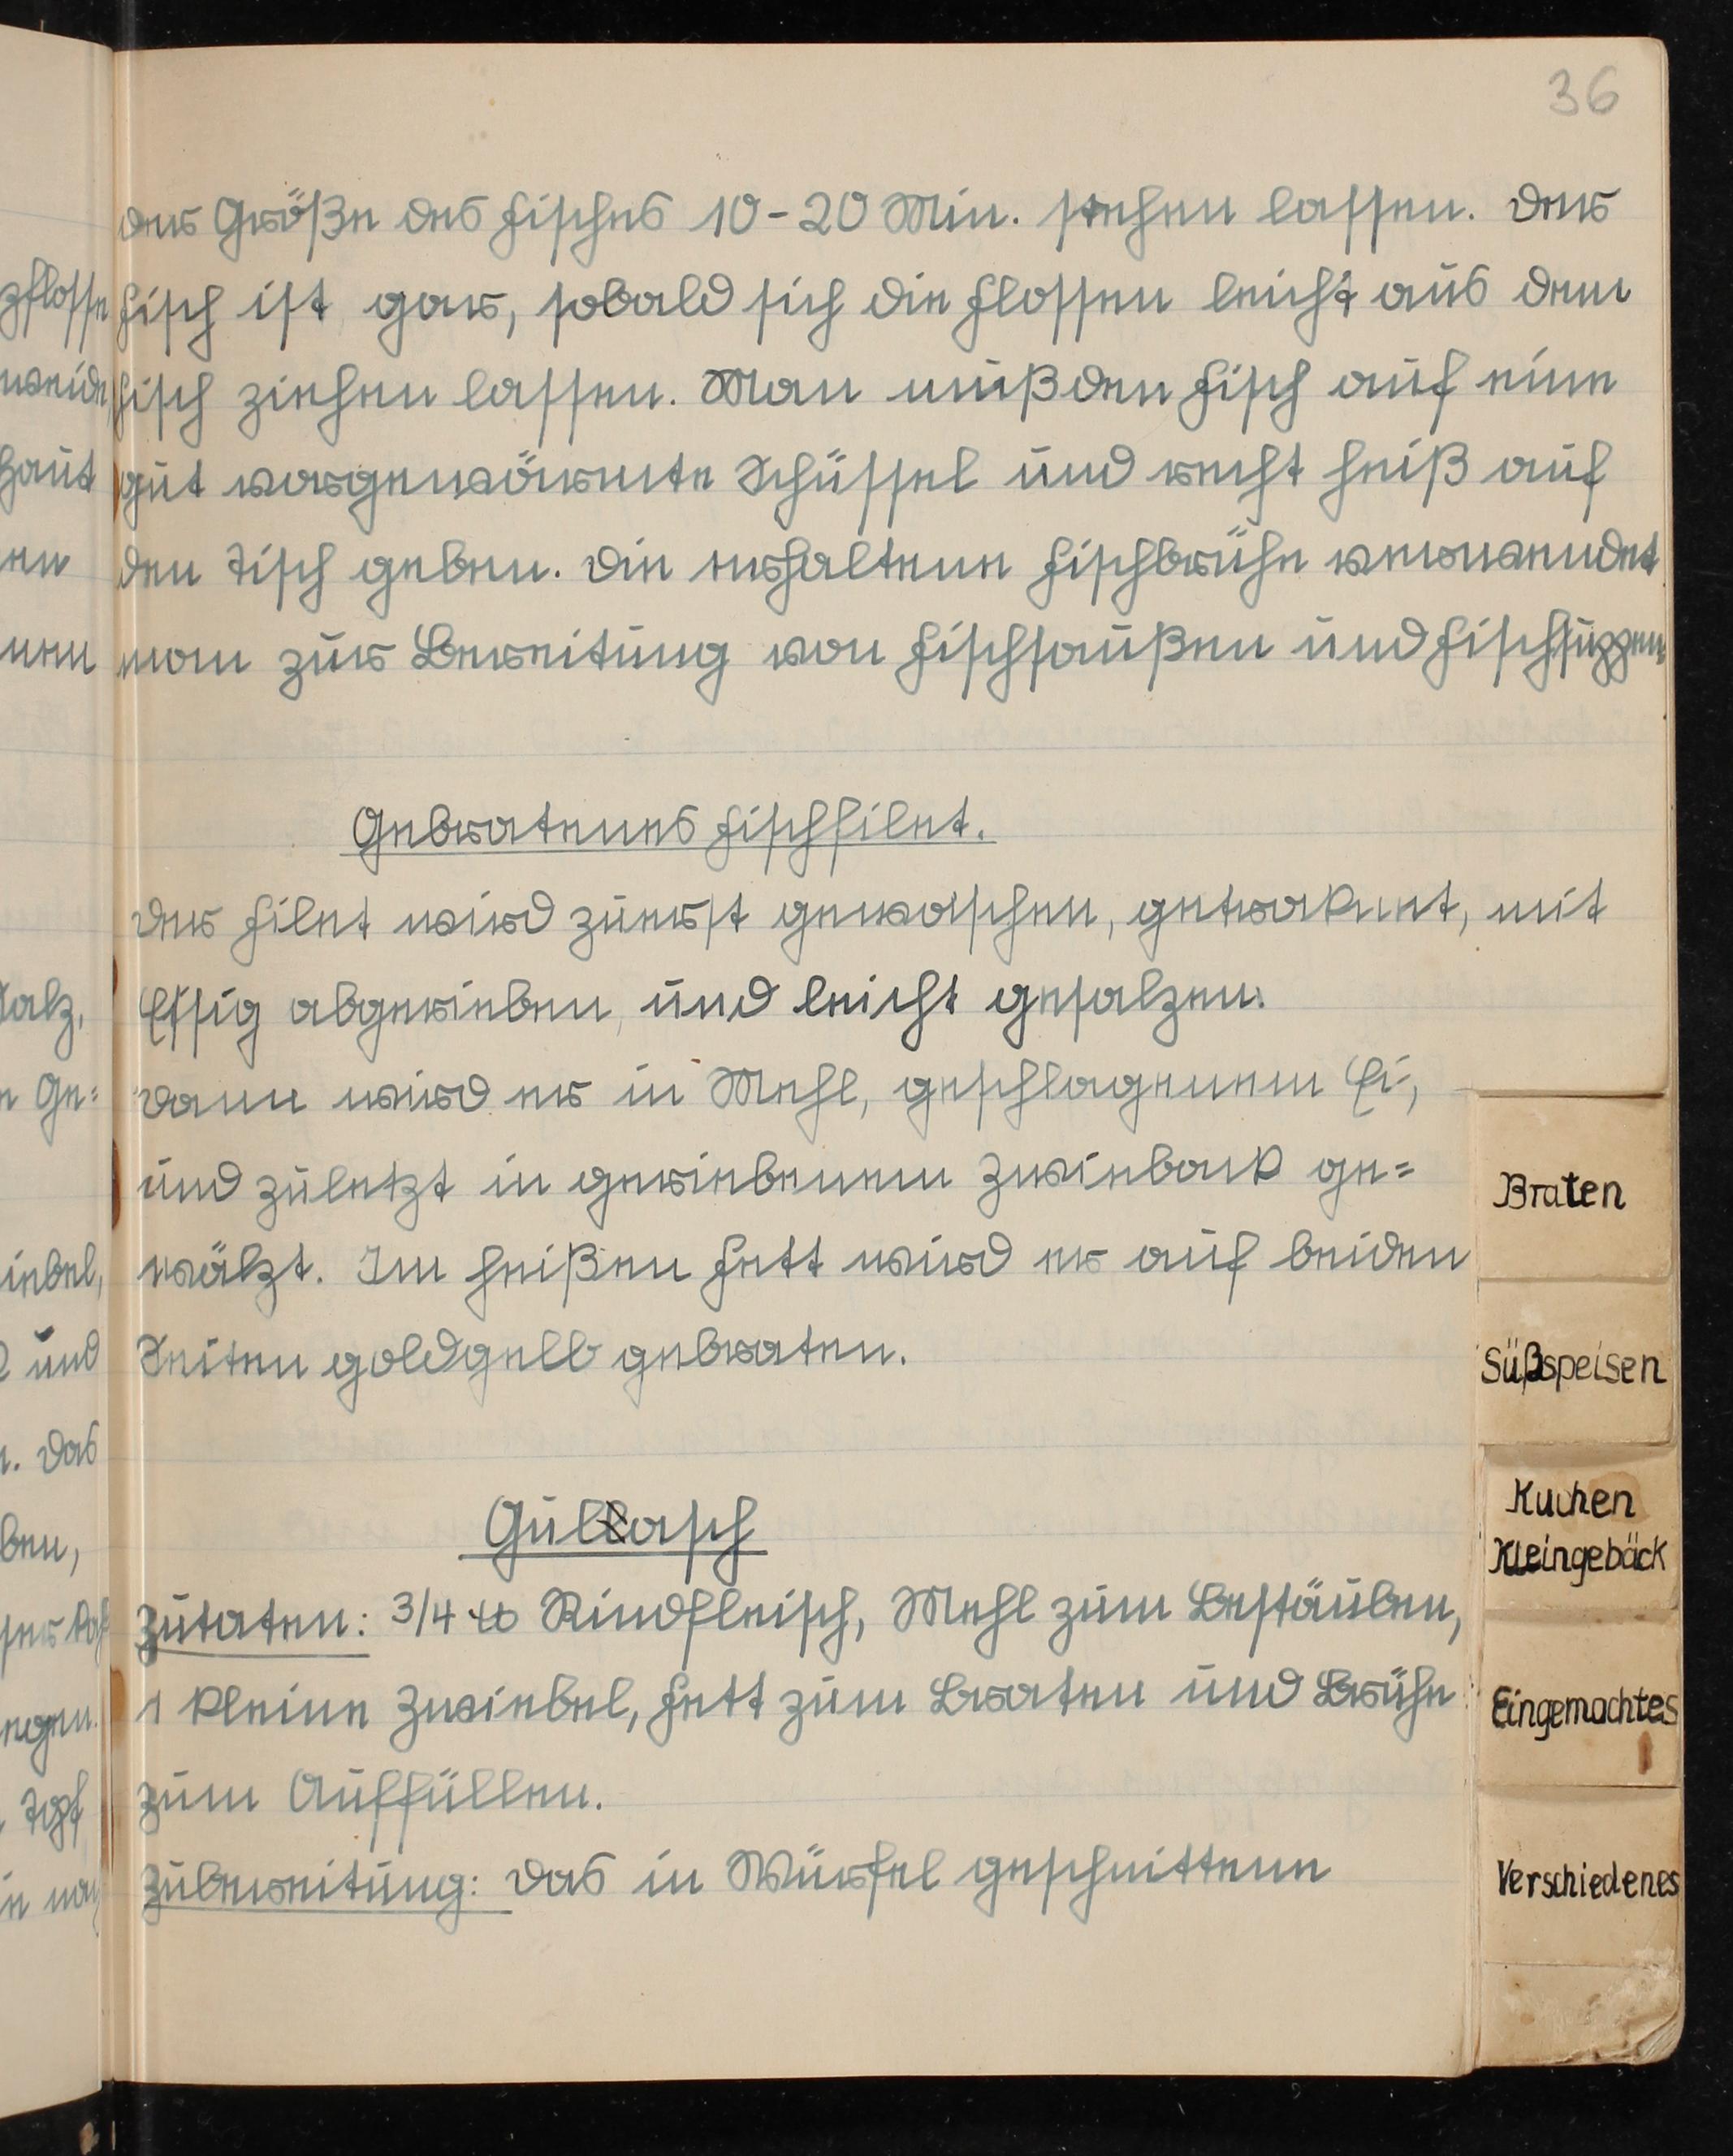 36
der Größe des Fisches 10-20 Min. stehen lassen. Der
Fisch ist gar, sobald sich die Flossen leicht aus dem
Fisch ziehen lassen. Man muß den Fisch auf eine
gut vorgewärmte Schüssel und recht heiß auf
den Tisch geben. Die erhaltene Fischbrühe verwendet
man zur Bereitung von Fischsaußen und Fischsuppen
Gebratenes Fischfilet.
Der Filet wird zuerst gewaschen, getroknet, mit
Essig abgerieben, und leicht gesalzen.
Dann wird er in Mehl, geschlagenem Ei,
und zuletzt in geriebenem Zwieback ge=
wälzt. Im heißen Fett wird er auf beiden
Seiten goldgelb gebraten.
Gullasch
Zutaten: 3/4 ℔ Rindfleisch, Mehl zum Bestäuben,
1 kleine Zwiebel, Fett zum Braten und Brühe
zum Auffüllen.
Zubereitung: Das in Würfel geschnittene
Braten
Süßspeisen
Kuchen
Kleingebäck
Eingemachtes
Verschiedenes